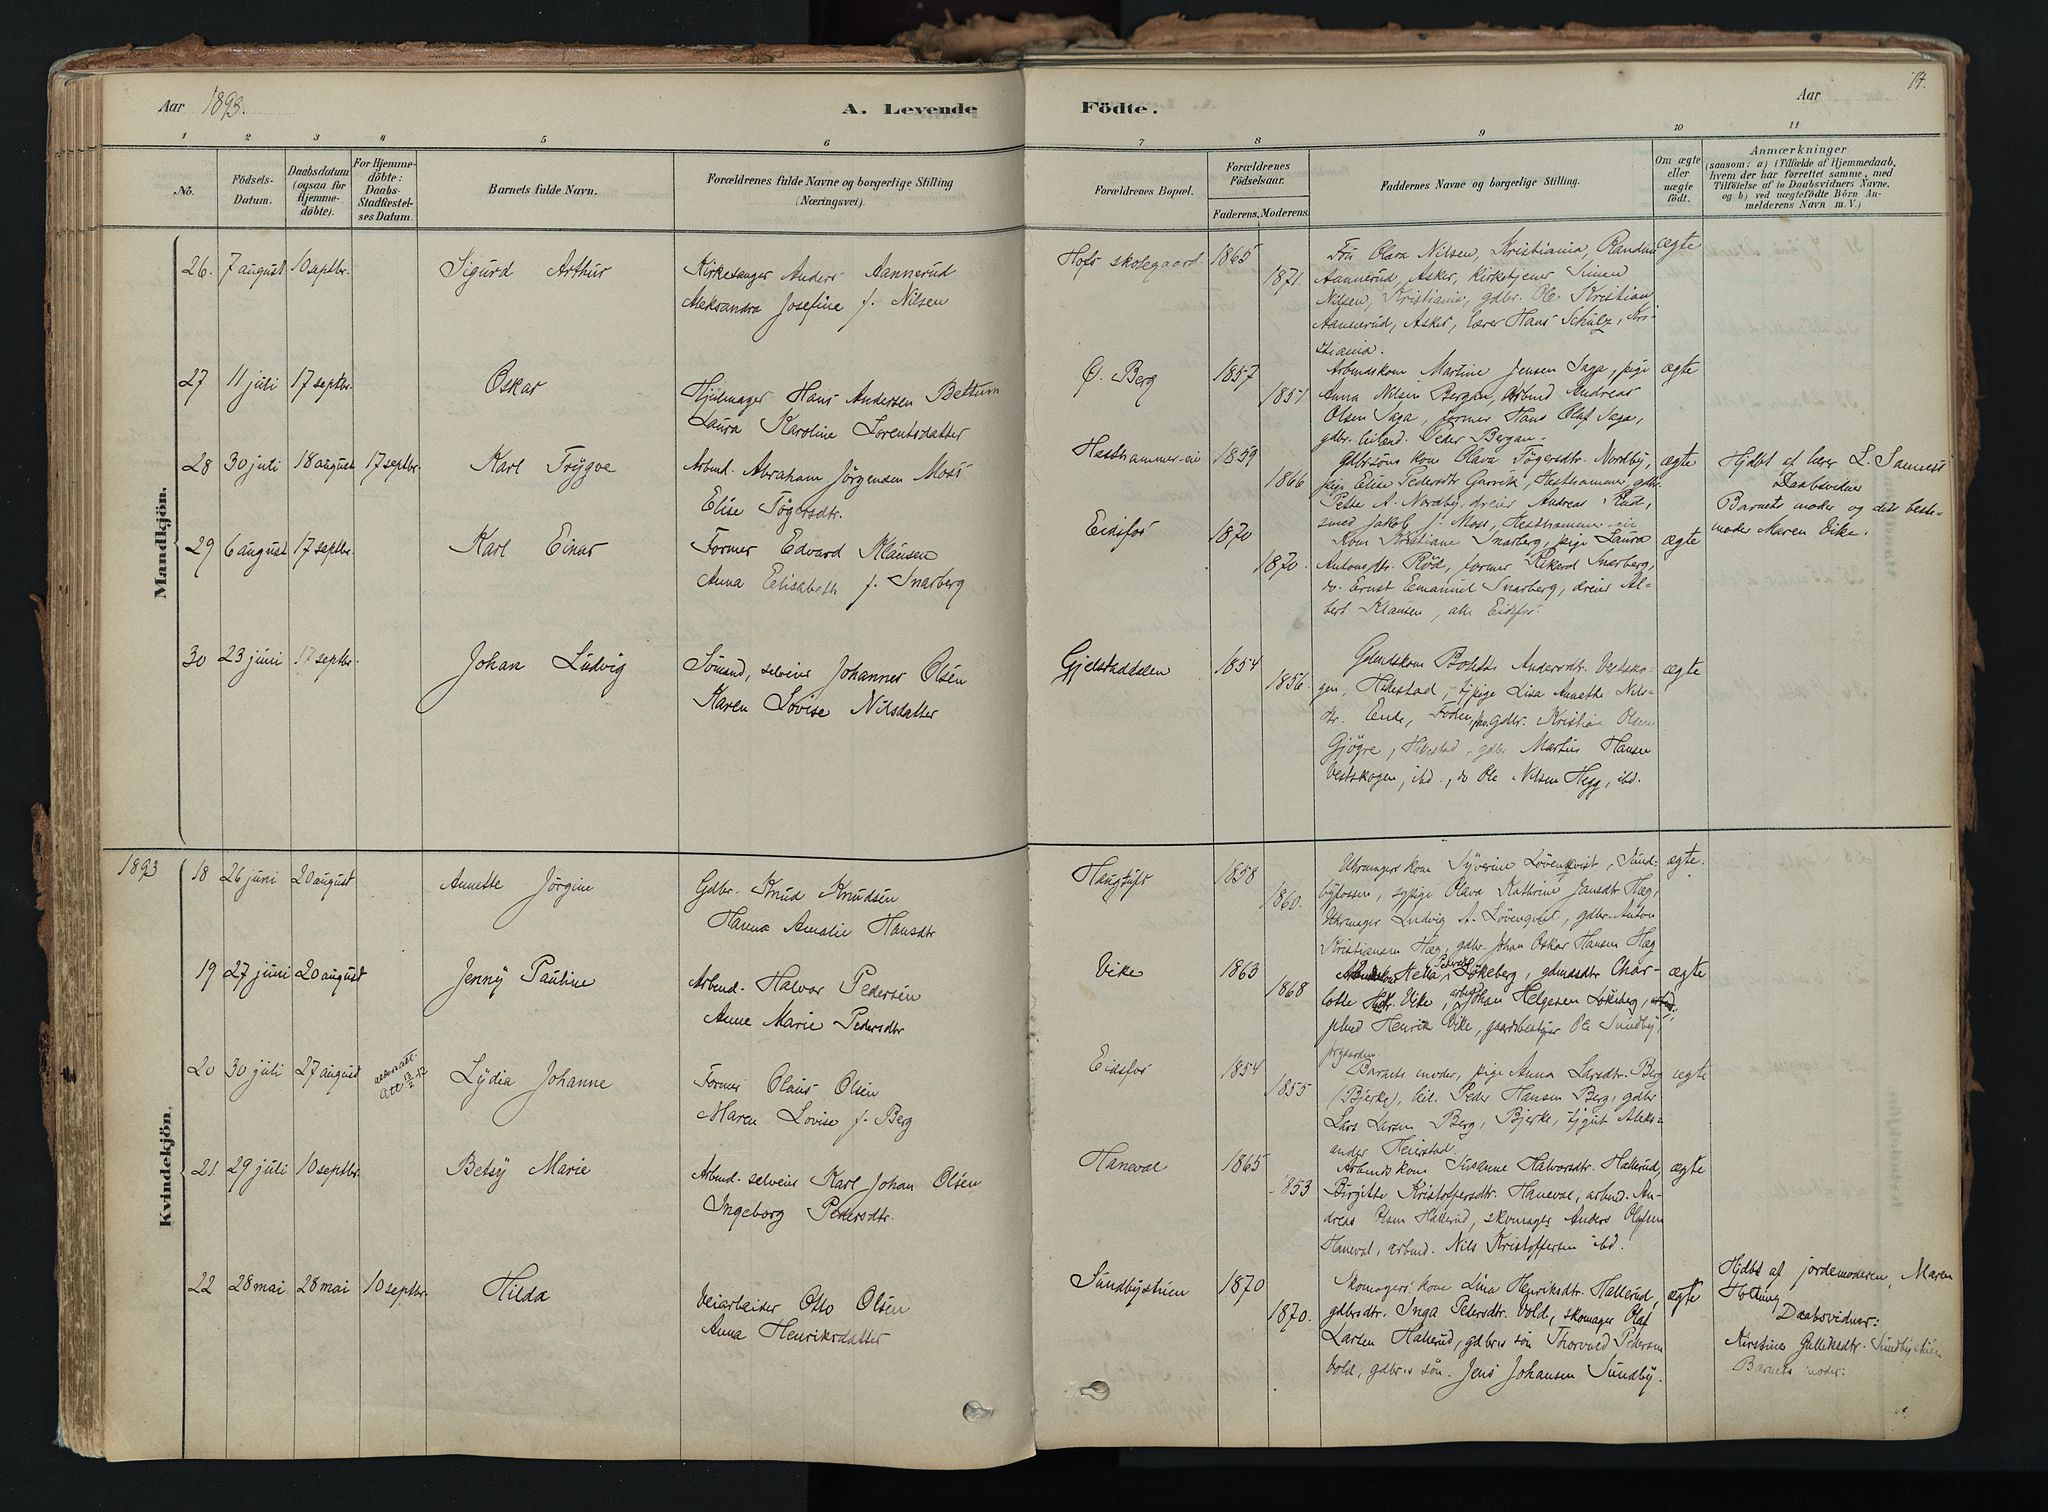 Aar 1893.
A. Levende
Födte.
Aar
14.
1 2 3 4 5 6 7 8 9 10 11
Nô.
Födsels-Datum.
Daabsdatum (ogsaa for Hjemme-döbte).
For Hjemme-döbte: Daabs-Stadfæstel-ses Datum.
Barnets fulde Navn.
Forældrenes fulde Navne og borgerlige Stilling (Næringsvei).
Forældrenes Bopæl.
Forældrenes Födselsaar.
Faderens. Moderens.
Faddernes Navne og borgerlige Stilling.
Om ægte eller uægte födt.
Anmærkninger
(saasom: a) i Tilfælde af Hjemmedaab, hvem der har forrettet samme, med Tilföielse af to Daabsvidners Navne, og b) ved uægtefödte Börn An-melderens Navn m. V.)
Mandkjön.
26. 7 august 10 septbr. Sigurd Arthur
Kirkesanger Anders Aannerud
Aleksandra Josefine f. Nilsen
Hofs skolegaard 1865 1871.
Frü Olava Nilsen, Kristiania, Randine
Aannerud, Asker, kirketjener Simen
Nilsen, Kristiania, gdbr. Ole Kristian
Aannerud, Asker, lærer Hans Schülz, Kri-
stiania.
ægte
27 11 juli 17 septbr. Oskar
Hjulmager Hans Andersen Bettum
Laura Karoline Lorentsdatter
Ö. Berg 1857 1851
Arbmdskone Martine Jensen Saga, pige
Anna Nilsen Bergan, arbmd Andreas
Olsen Saga, former Hans Olaf Saga,
gdbr. leiland. Peder Bergan.
ægte
28 30 juli 18 august 17 septbr. Karl Trygve
Arbmd. Abraham Jörgensen Moss
Elise Tögersdtr.
Hesthammer-eie 1859 1866
Gdbrsöns kone Olava Tögersdtr. Nordby,
pige Elise Pedersdtr Garvik, Hesthammer, gdbr.
Petter A. Nordby, dreier Andreas
smed Jakob J. Moss, Hesthammer-eie
ægte
Hjdbt af lærer L. Samess
Daabsvidner
Barnets moder og dets beste-
moder Maren Eike.
29 6 august 17 septbr. Karl Einar
Former Edvard Klausen
Anna Elisabeth f. Snarberg
Eidsfos 1870 1870.
Kone Kristiane Snarberg, pige Laura
Antonsdtr. Röd, former Rikard Snarberg,
do. Ernst Emanuel Snarberg, dreier Al-
bert Klausen, alle Eidsfos.
ægte
30 23 juni 17 septbr. Johan Ludvig
Sömand, selveier Johannes Olsen
Karen Lovise Nilsdatter
Gjelstaddalen 1854 1856.
Gdmdskone Andersdtr. Vestsko-
gen, Hillestad, tjpige Lisa Annette Nils-
dtr. Ende, gdbr. Kristian Olsen
Gjögre, Hillestad, gdbr Martin Hansen
Vestskogen, ibd., do Ole Nilsen Hegg, ibd.
ægte
Kvindekjön.
1893
18 26 juni 20 august Annette Jörgine
Gdbr. Knud Knudsen
Hanna Amalie Hansdtr
Haugtuft 1858 1860.
Uhrmagers kone Syverine Lövenqvist, Sund-
byfossen, sypige Olava Kathrine Jansdtr Hæg,
Uhrmager Ludvig A. Lövenqvist, gdbr. Anton
Kristiansen Hæg, gdbr. Johan Oskar Hansen Hæg
ægte.
19 27 juni 20 august Jenny Pauline
Arbmd. Halvor Pedersen
Anne Marie Pedersdtr
Vike 1863 1868
Helle Pedersdtr Lökeberg, gdmdsdtr Char-
lotte Vike, arbmd Johan Helgesen Lökeberg,
Henrik Vike, gaardbestyrer Ole Sundby,
ægte
20 30 juli 27 august Lydia Johanne
Former Olaus Olsen
Maren Lovise f. Berg
Eidsfos 1854 1855
Barnets moder, pige Anna Larsdtr. Berg
(Bjerke), leil. Peder Hansen Berg, gdbr
Lars Larsen Berg, Bjerke, tjgut Aleks-
ander Heierstad.
ægte
21 29 juli 10 septbr. Betsy Marie
Arbmd. selveier Karl Johan Olsen
Ingeborg Pedersdtr.
Haneval 1865 1853
Arbmds kone Susanne Halvorsdtr. Hallerud,
Birgitte Kristoffersdtr. Haneval, arbmd. An-
dreas Olsen Hallerud, skomager Anders Olafsen
Haneval, arbmd. Nils Kristoffersen ibd.
ægte
22 28 mai 28 mai 10 septbr. Hilda
Veiarbeider Otto Olsen
Anna Henriksdatter
Sundbystuen 1870 1870.
Skomagers kone Lina Henriksdtr. Hallerud,
gdbrsdtr. Inga Petersdtr. Vold, skomager Olaf
Larsen Hallerud, gdbrs sön Thorvald Pedersen
Vold, gdbrs sön. Jens Johansen Sundby.
ægte
Hjdbt af jordemoderen, Maren
Holtung
Daabsvidner:
Kirstine Gulliksdtr. Sundbystuen
Barnets moder.